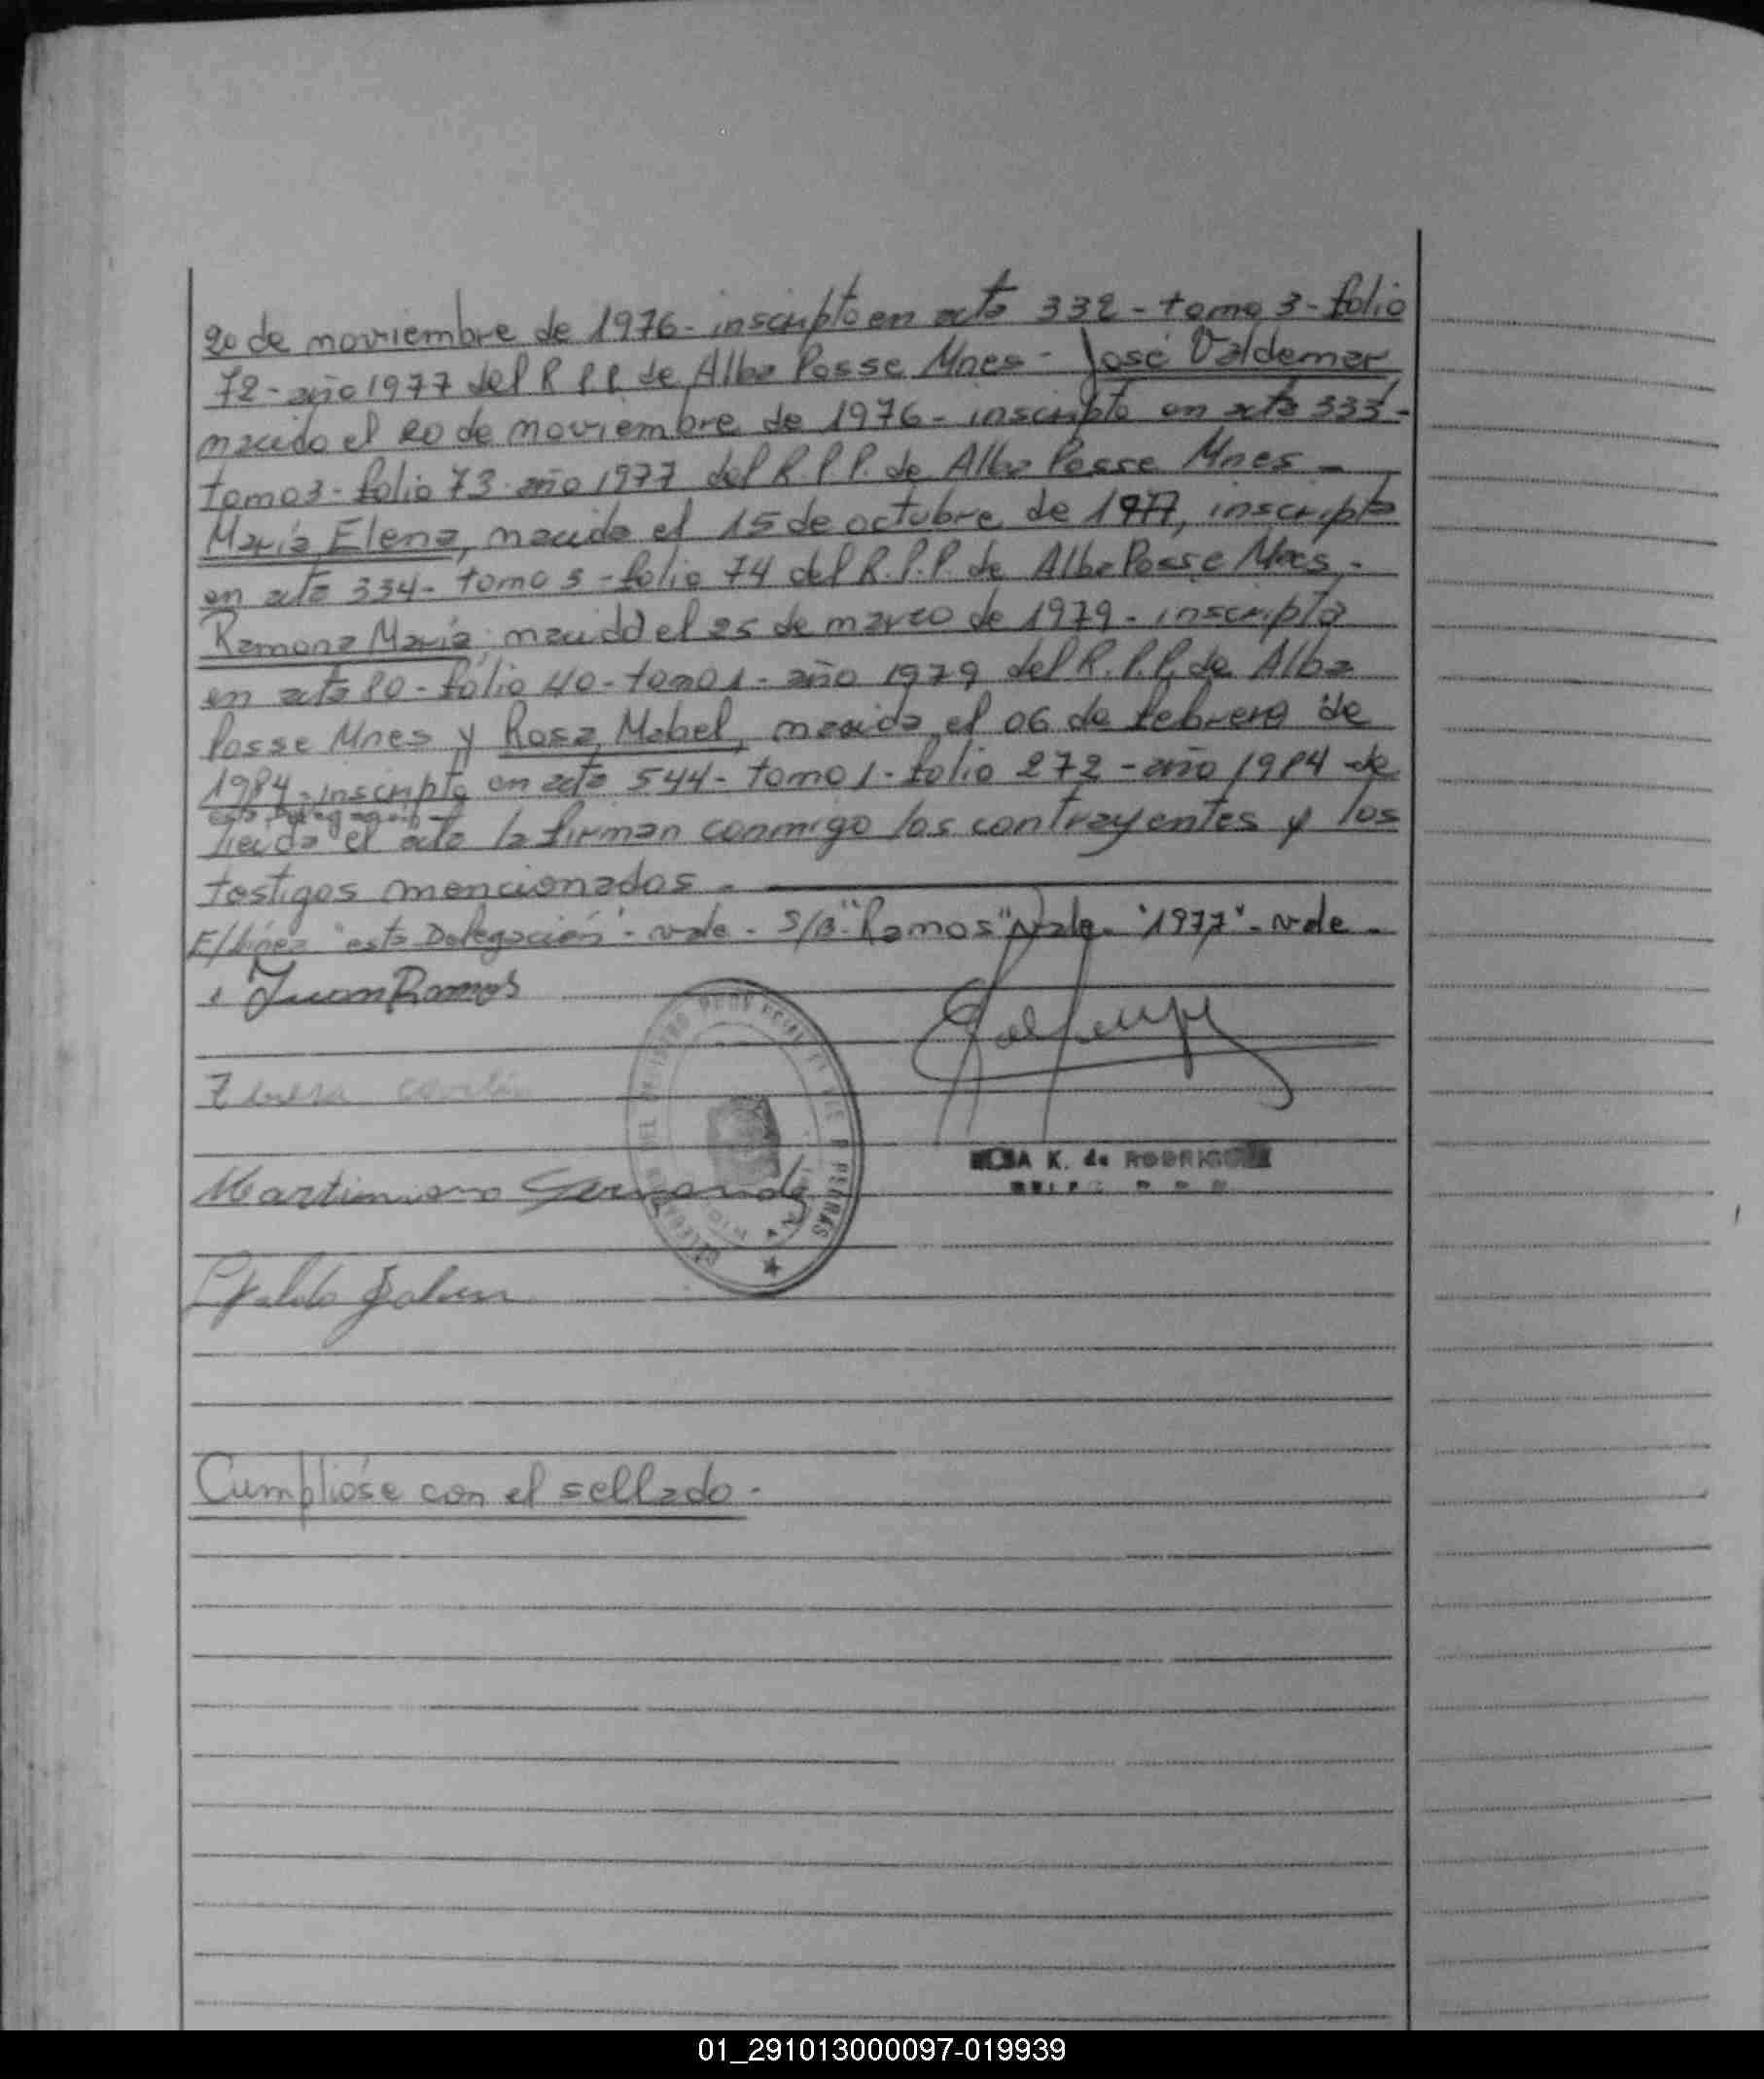 20 de noviembre de 1976- inscripto en acta 332 - tomo 3 - folio
72 - año 1977 del R.P.P. de Alba Posse Mnes - José Valdemar
nacido el 20 de noviembre de 1976 - inscripto en acta 333 -
tomo 3 - folio 73 - año 1977 del R.P.P. de Alba Posse Mnes -
María Elena, nacida el 15 de octubre de 1977, inscripta
en acta 334 - tomo 3 - folio 74 del R.P.P. de Alba Posse Mnes -
Ramona María nacida el 25 de marzo de 1979 - inscripta
en acta 80 - folio 40 - tomo 1 - año 1979 del R.P.P. de Alba
Posse Mnes y Rosa Mabel, nacida el 06 de febrero de
1984 - inscripta en acta 544 - tomo 1 - folio 272 - año 1984 de
esta Delegación -
Leida el acta la firman conmigo los contrayentes y los
testigos mencionados -
E/linea "esta Delegación" - vale - S/B "Ramos" Vale - "1977" - vale -
Juan Ramos
Martiniano
K. de RODRIGUEZ
Cumplióse con el sellado -
01_291013000097-019939